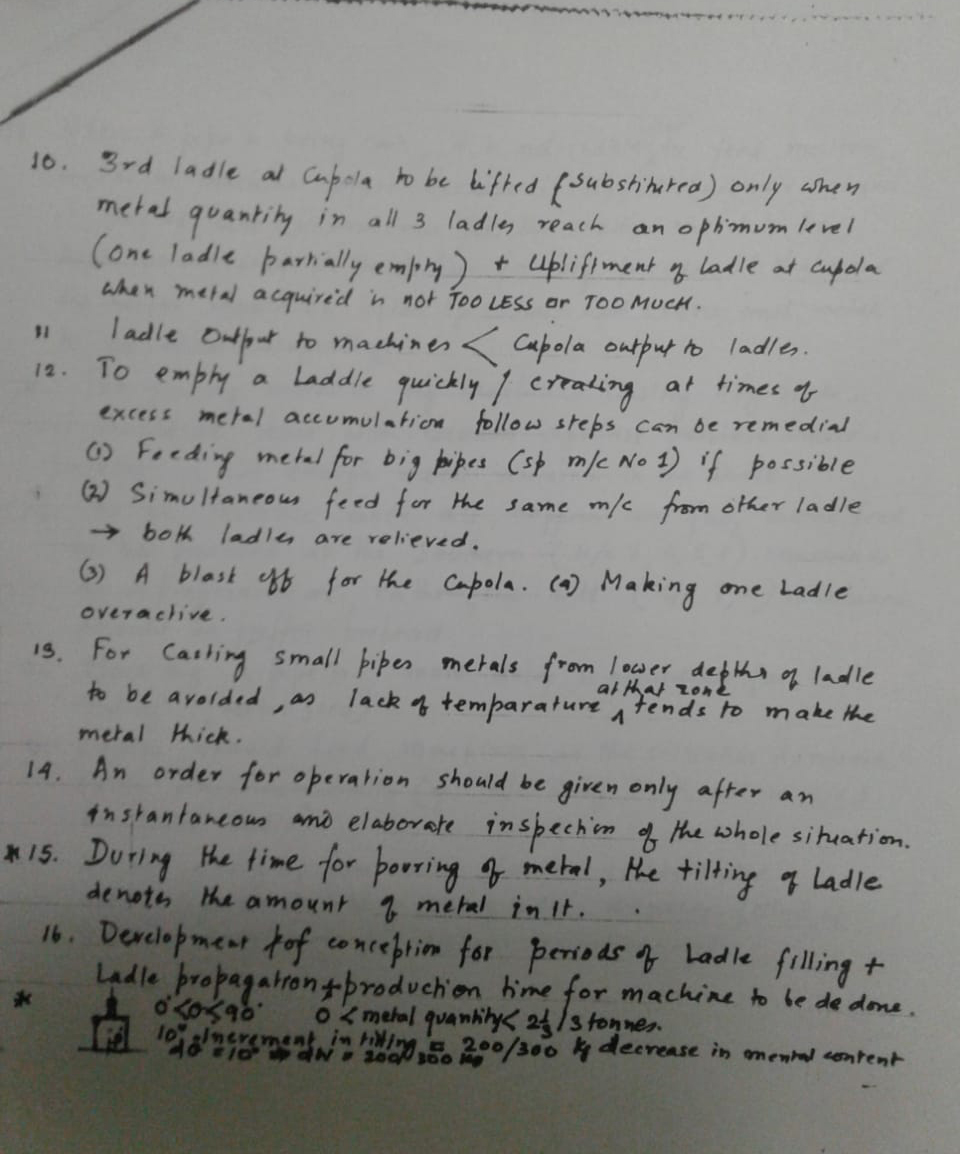 10. 3rd ladle at Cupola to be lifted (Substituted) only when
metal quantity in all 3 ladles reach an optimum level
(one ladle partially empty) + Upliftment of ladle at cupola
when metal acquired is not TOO LESS or TOO MUCH.
11 ladle Output to machines < Cupola output to ladles.
12. To empty a Laddle quickly / creating at times of
excess metal accumulation follow steps can be remedial
(1) Feeding metal for big pipes (sp m/c No 1) if possible
(2) Simultaneous feed for the same m/c from other ladle
→ both ladles are relieved.
(3) A blast off for the Cupola. (4) Making one Ladle
overactive.
13. For Casting small pipes metals from lower depths of ladle
to be avoided, as lack of temparature ^ at that zone tends to make the
metal thick.
14. An order for operation should be given only after an
instantaneous and elaborate inspection of the whole situation.
* 15. During the time for pouring of metal, the tilting of Ladle
denotes the amount of metal in it.
16. Development of conception for periods of Ladle filling +
Ladle propagation + production time for machine to be de done.
* 0°<θ≤90° 0 < metal quantity < 2½/3 tonnes.
10° increment in tilting = 200/300 kg decrease in mental content
dθ = 10° → dN = 200/300 kg